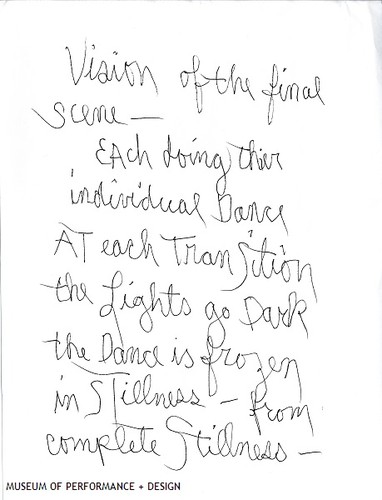 Vision of the final
scene —
EACh doing thier
individual Dance
AT each Transition
the Lights go Dark
the Dance is frozen
in STillness — from
complete Stillness —
MUSEUM OF PERFORMANCE + DESIGN